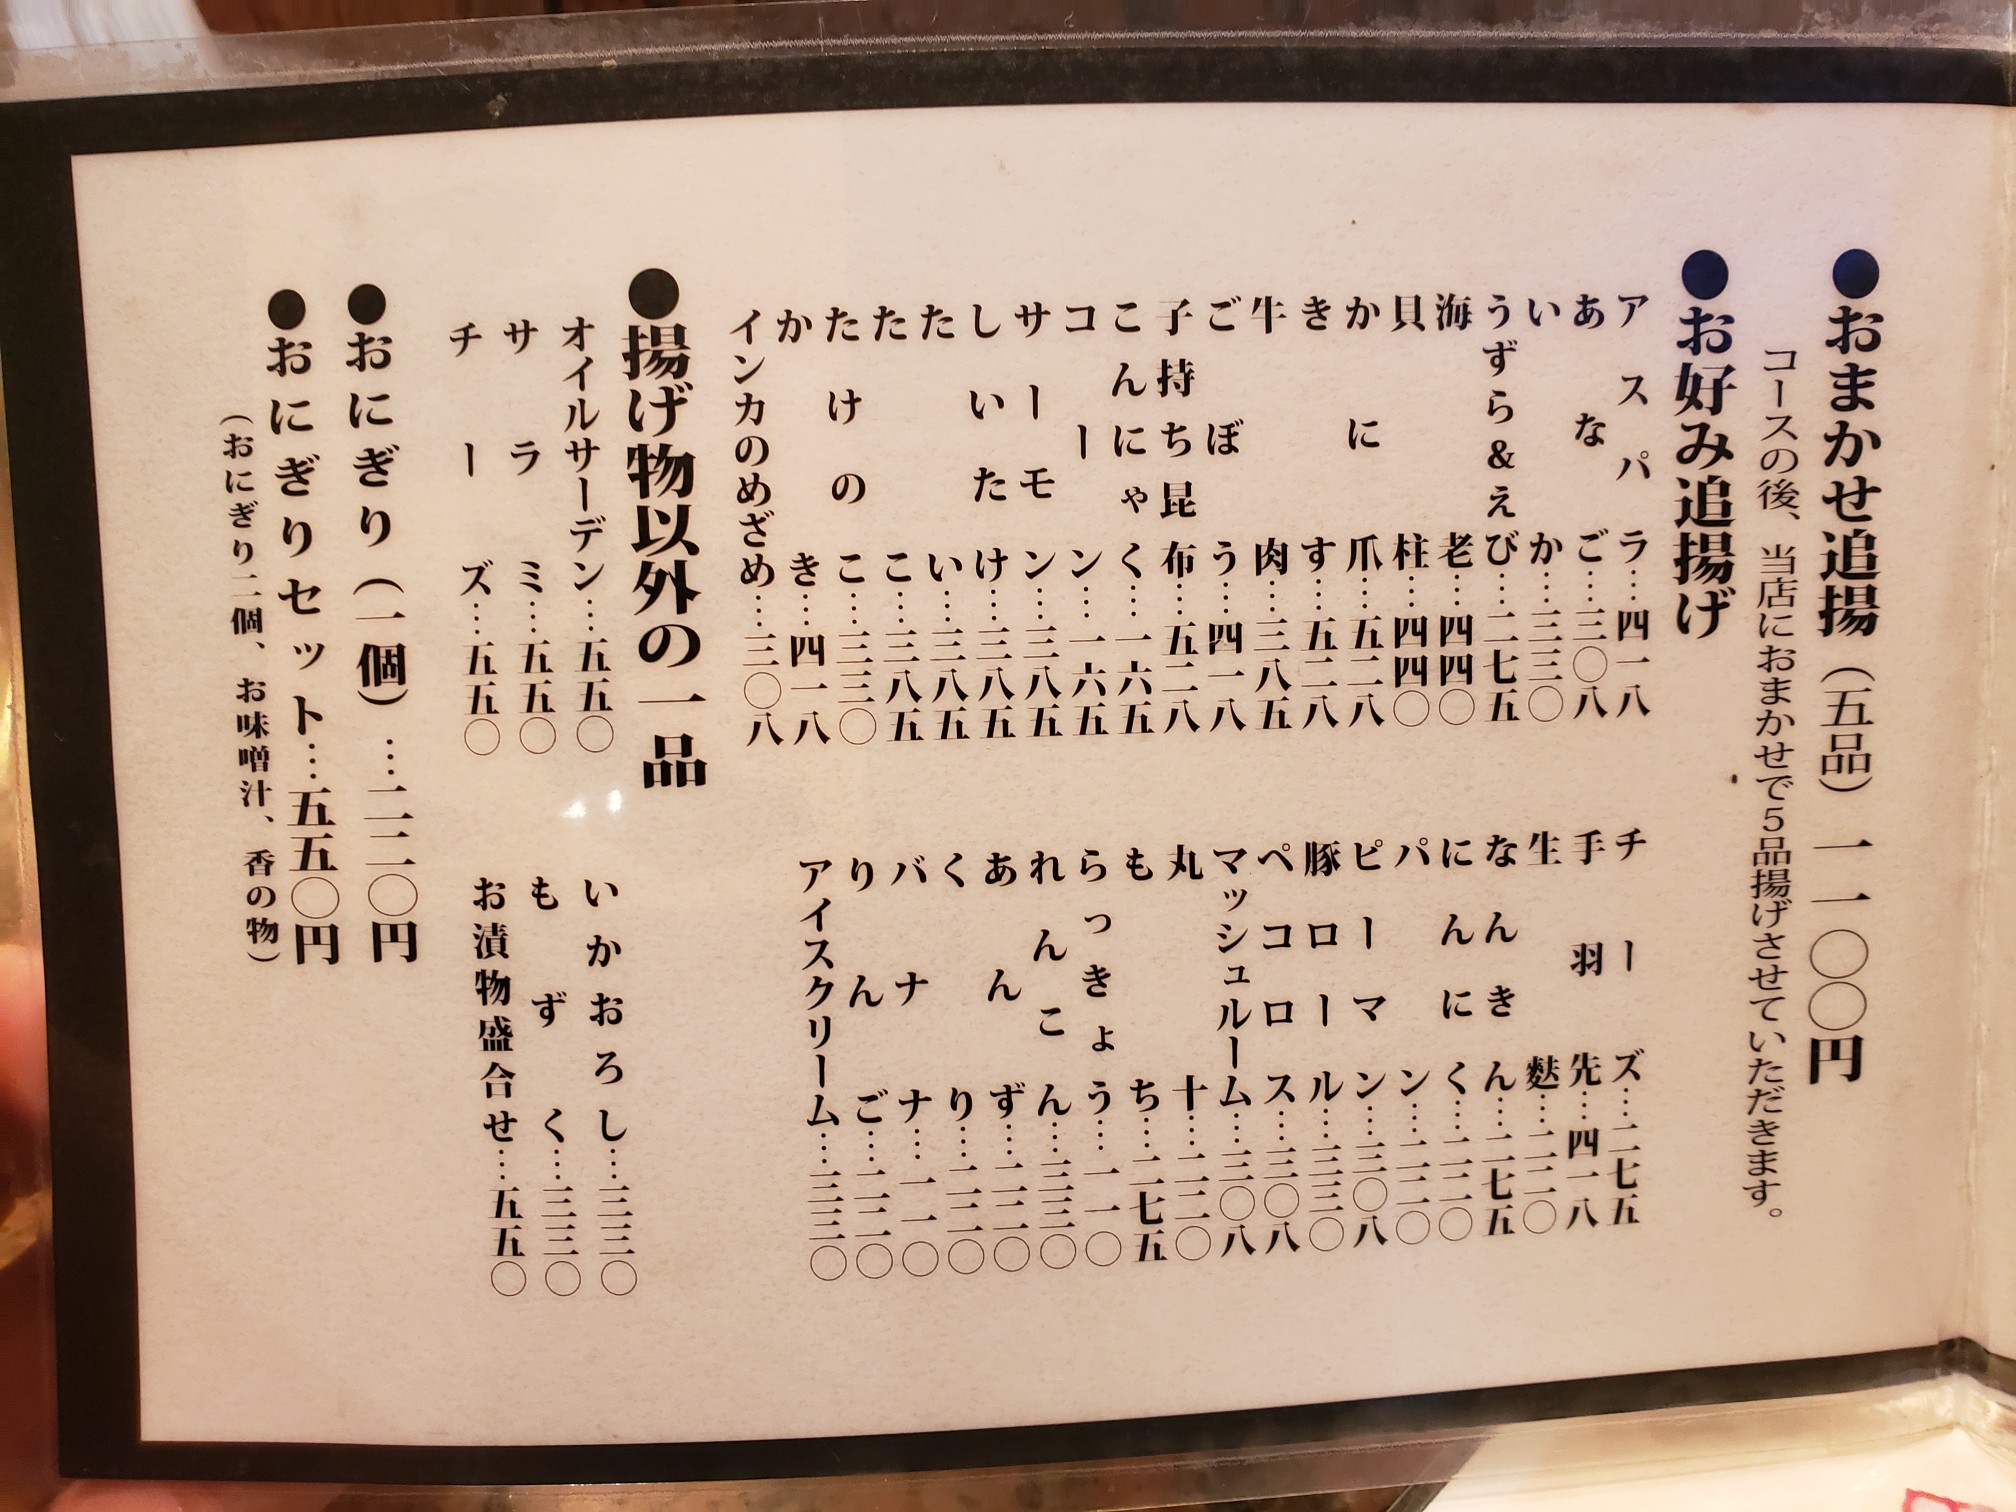 ●おまかせ追揚（五品）一一〇〇円
コースの後、当店におまかせで5品揚げさせていただきます。
●お好み追揚げ
アスパラ…四一八
あなご…三〇八
いか…三三〇
うずら&えび…二七五
海老…四四〇
貝柱…四四〇
かに爪…五二八
きす…五二八
牛肉…三八五
ごぼう…四一八
子持ち昆布…五二八
こんにゃく…一六五
コーン…一六五
サーモン…三八五
しいたけ…三八五
たい…三八五
たこ…三八五
たけのこ…三三〇
かき…四一八
インカのめざめ…三〇八
チーズ…二七五
手羽先…四一八
生麩…二二〇
なんきん…二七五
にんにく…二二〇
パン…二二〇
ピーマン…三〇八
豚ロール…三三〇
ペコロス…三〇八
マッシュルーム…三〇八
丸十…二二〇
もち…二七五
らっきょう…一一〇
れんこん…三三〇
あんず…二二〇
くり…二二〇
バナナ…一一〇
りんご…二二〇
アイスクリーム…三三〇
●揚げ物以外の一品
オイルサーデン…五五〇
サラミ…五五〇
チーズ…五五〇
いかおろし…三三〇
もずく…三三〇
お漬物盛合せ…五五〇
●おにぎり（一個）…二二〇円
●おにぎりセット…五五〇円
（おにぎり二個、お味噌汁、香の物）